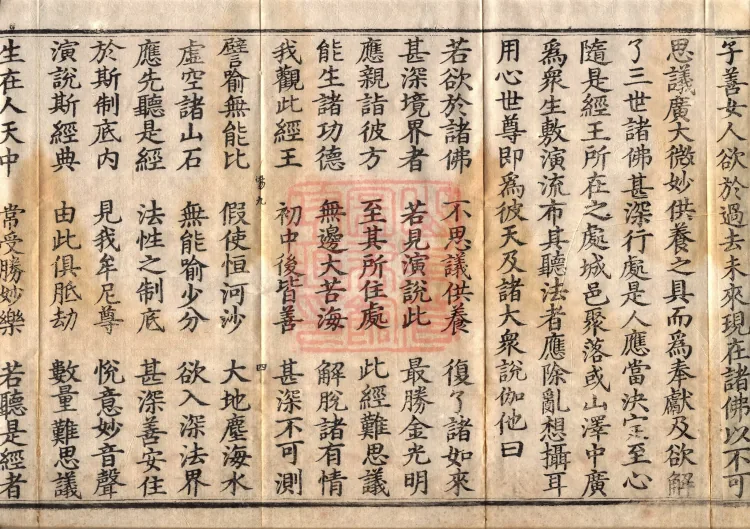 子善女人欲於過去未來現在諸佛以不可
思議廣大微妙供養之具而爲奉獻及欲解
了三世諸佛甚深行處是人應當決定至心
隨是經王所在之處城邑聚落或山澤中廣
爲衆生敷演流布其聽法者應除亂想攝耳
用心世尊即爲彼天及諸大衆說伽他曰
若欲於諸佛 不思議供養 復了諸如來
甚深境界者 若見演說此 最勝金光明
應親詣彼方 至其所住處 此經難思議
能生諸功德 無邊大苦海 解脫諸有情
我觀此經王 初中後皆善 甚深不可測
譬喻無能比 假使恒河沙 大地塵海水
虛空諸山石 無能喻少分 欲入深法界
應先聽是經 法性之制底 甚深善安住
於斯制底内 見我牟尼尊 悅意妙音聲
演說斯經典 由此俱胝劫 數量難思議
生在人天中 常受勝妙樂 若聽是經者